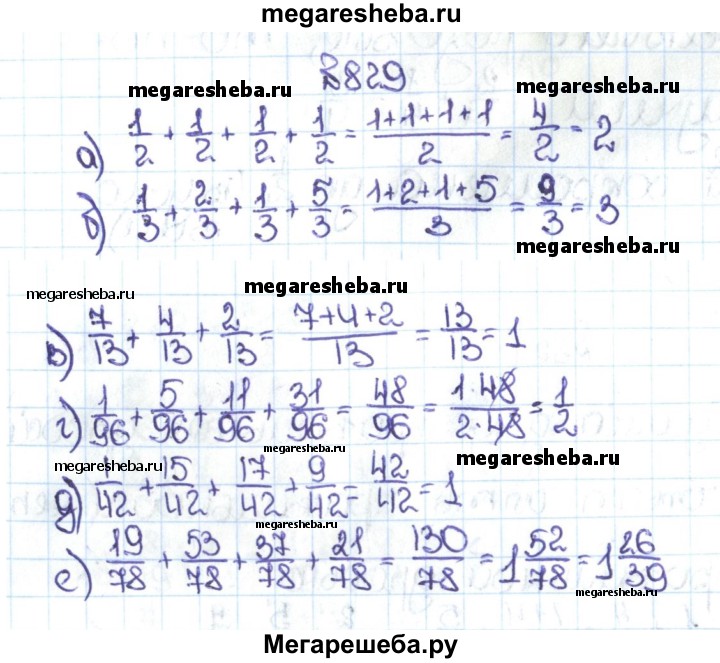 megaresheba.ru
№829
megaresheba.ru
megaresheba.ru
а) 1/2 + 1/2 + 1/2 + 1/2 = (1+1+1+1)/2 = 4/2 = 2
б) 1/3 + 2/3 + 1/3 + 5/3 = (1+2+1+5)/3 = 9/3 = 3
megaresheba.ru
megaresheba.ru
megaresheba.ru
в) 7/13 + 4/13 + 2/13 = (7+4+2)/13 = 13/13 = 1
г) 1/96 + 5/96 + 11/96 + 31/96 = 48/96 = (1·48)/(2·48) = 1/2
megaresheba.ru
megaresheba.ru
д) 1/42 + 15/42 + 17/42 + 9/42 = 42/42 = 1
megaresheba.ru
е) 19/78 + 53/78 + 37/78 + 21/78 = 130/78 = 1 52/78 = 1 26/39
megaresheba.ru
Мегарешеба.ру